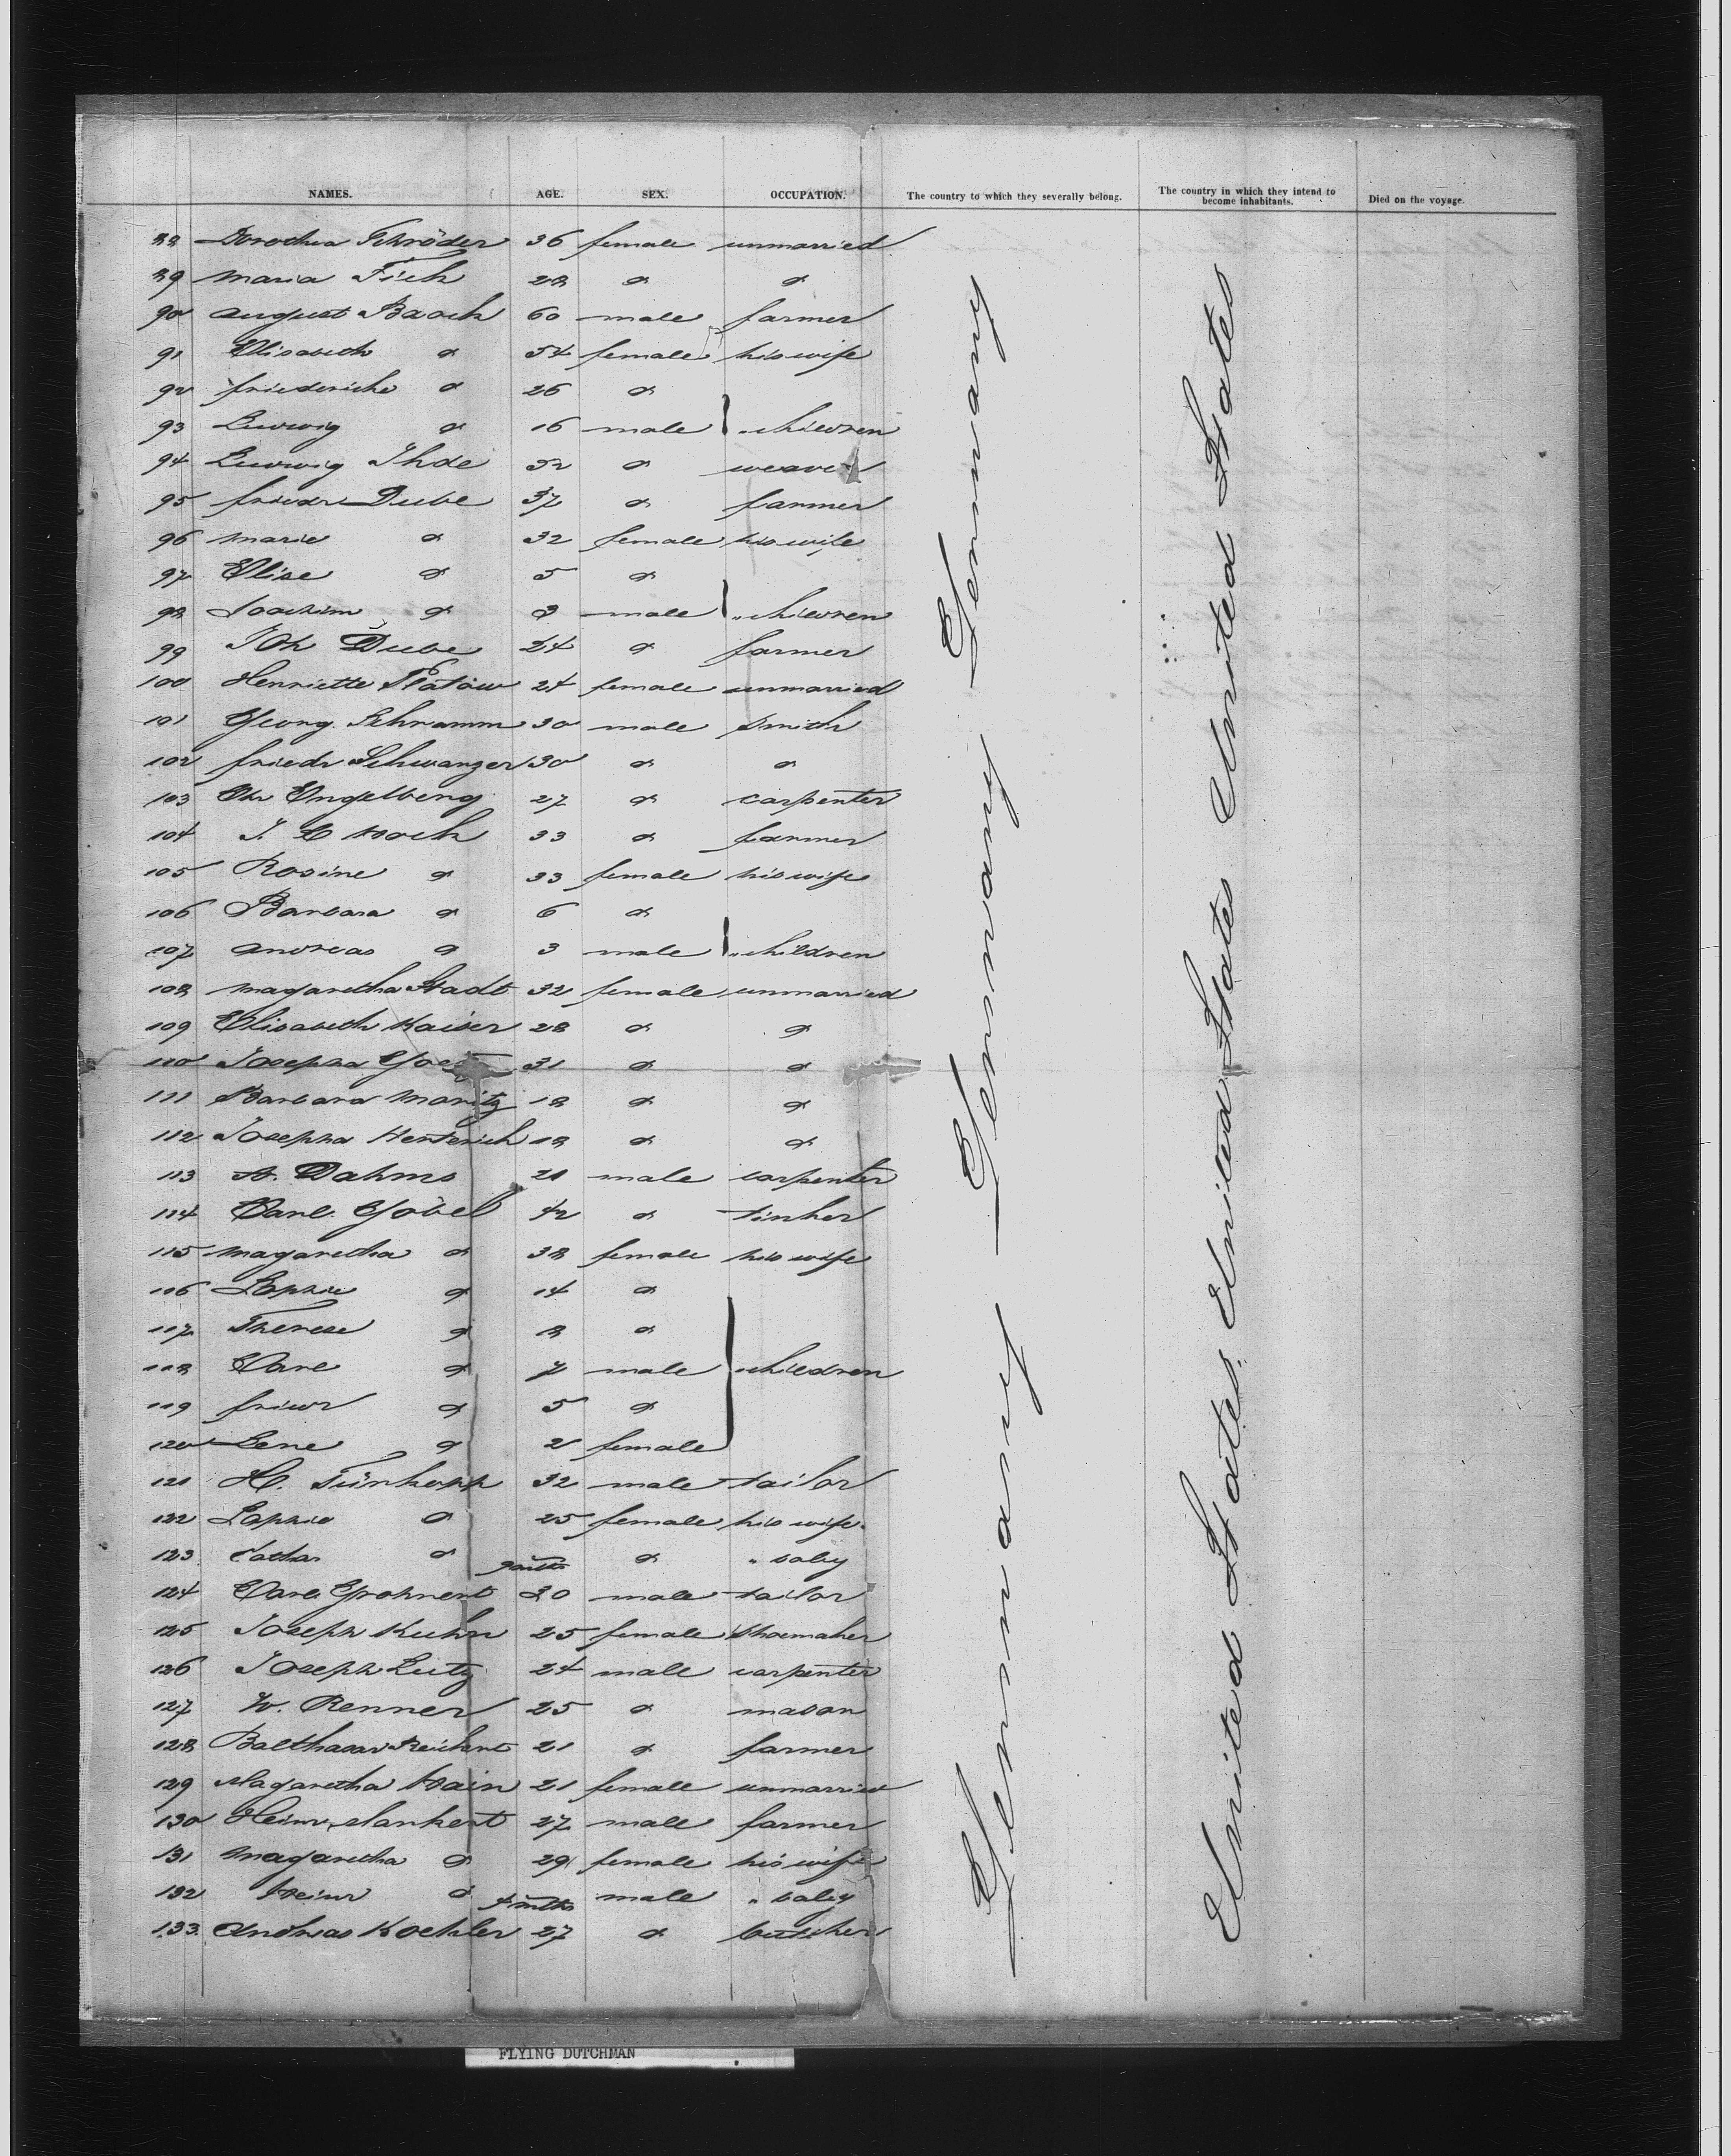 NAMES. AGE. SEX. OCCUPATION. The country to which they severally belong. The country in which they intend to become inhabitants. Died on the voyage.
88 Dorothea Schröder 36 female unmarried
89 Maria Fick 28 do do
90 August Baack 60 male farmer
91 Elisabeth do 54 female his wife
92 friederike do 26 do
93 Ludwig do 16 male } " children
94 Ludwig Ihde 32 do weaver
95 friedr Dube 37 do farmer
96 Marie do 32 female his wife
97 Elise do 5 do
98 Joachim do 3 male } " children
99 Joh Dube 24 do farmer
100 Henriette Platow 24 female unmarried
101 Georg Schramm 30 male smith
102 friedr Schwanzer 30 do do
103 Chr Engelberg 27 do carpenter
104 J. C Koch 33 do farmer
105 Rosine do 33 female his wife
106 Barbara do 6 do
107 Andreas do 3 male } " children
108 Magaretha Stadt 32 female unmarried
109 Elisabeth Kaiser 28 do do
110 Josepha 31 do do
111 Barbara Moritz 18 do do
112 Josepha Henterich 18 do do
113 Dahms 21 male carpenter
114 Carl Göbel 42 do tinker
115 Magaretha do 38 female his wife
116 Sophie do 14 do
117 Therese do 8 do
118 Carl do 7 male } " children
119 friedr do 5 do
120 Lene do 2 female
121 H. Tünkopp 32 male tailor
122 Sophie do 25 female his wife
123 Cathar do 9 mths do " baby
124 Carl Grohnert 20 male tailor
125 Joseph Kuhn 25 female shoemaker
126 Joseph Lutz 24 male carpenter
127 W. Renner 25 do mason
128 Balthasar Reichert 21 do farmer
129 Magaretha Hain 21 female unmarried
130 Heinr Mankert 27 male farmer
131 Magaretha do 29 female his wife
132 Heinr do 4 mths male " baby
133. Andreas Koehler 27 do butcher
Germany Germany Germany Germany
United States United States United States United States
FLYING DUTCHMAN